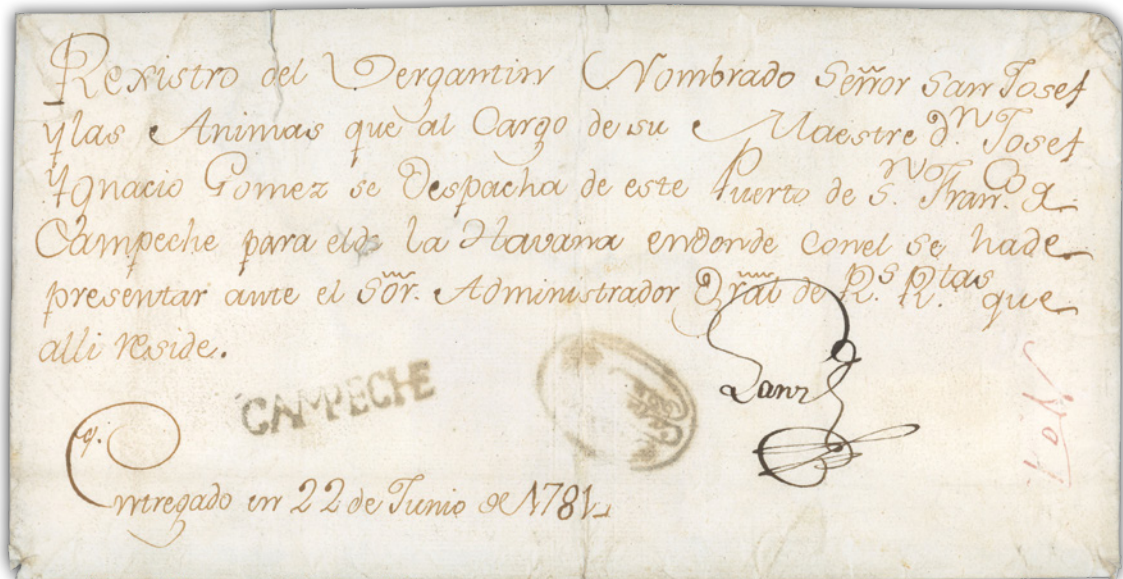 Rexistro del Vergantin Nombrado Señor San Josef
y las Animas que al Cargo de su Maestre Dn. Josef
Ygnacio Gomez se Despacha de este Puerto de Sn. Franco. de
Campeche para el de la Havana en donde con el se ha de
presentar ante el Sōr. Administrador Gral de Rs. Rtas que
alli reside.
CAMPECHE
Entregado en 22 de Junio de 1781